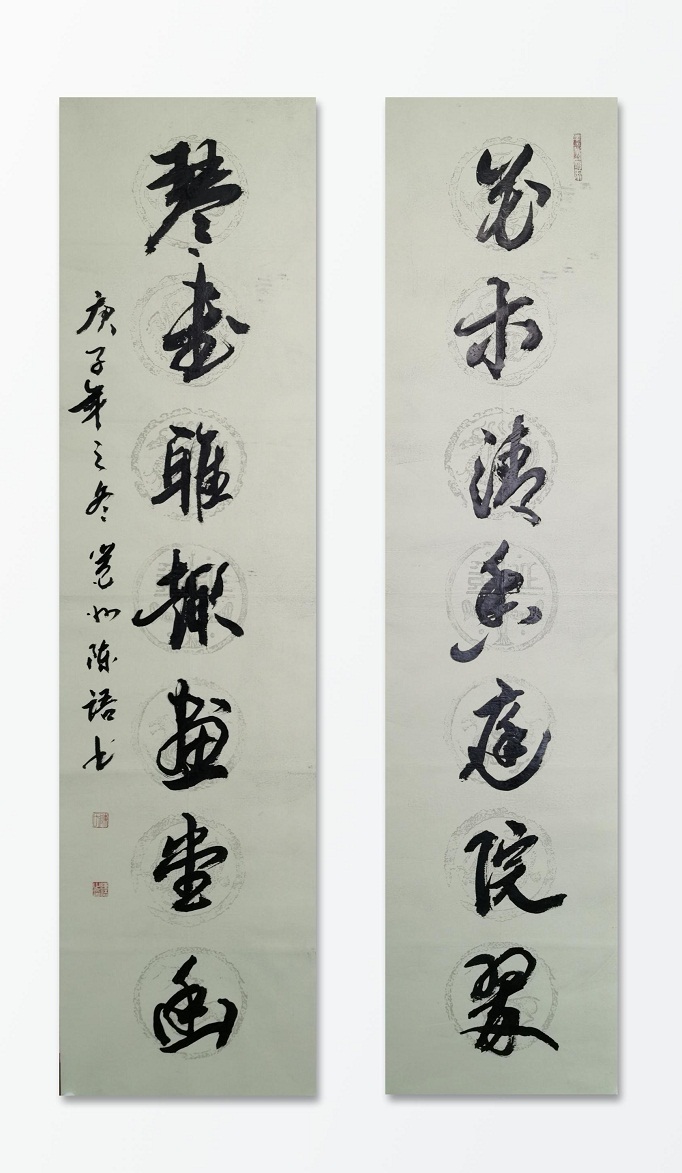 花木清香庭院翠
琴书雅趣画堂幽
庚子年之冬 州陈语书